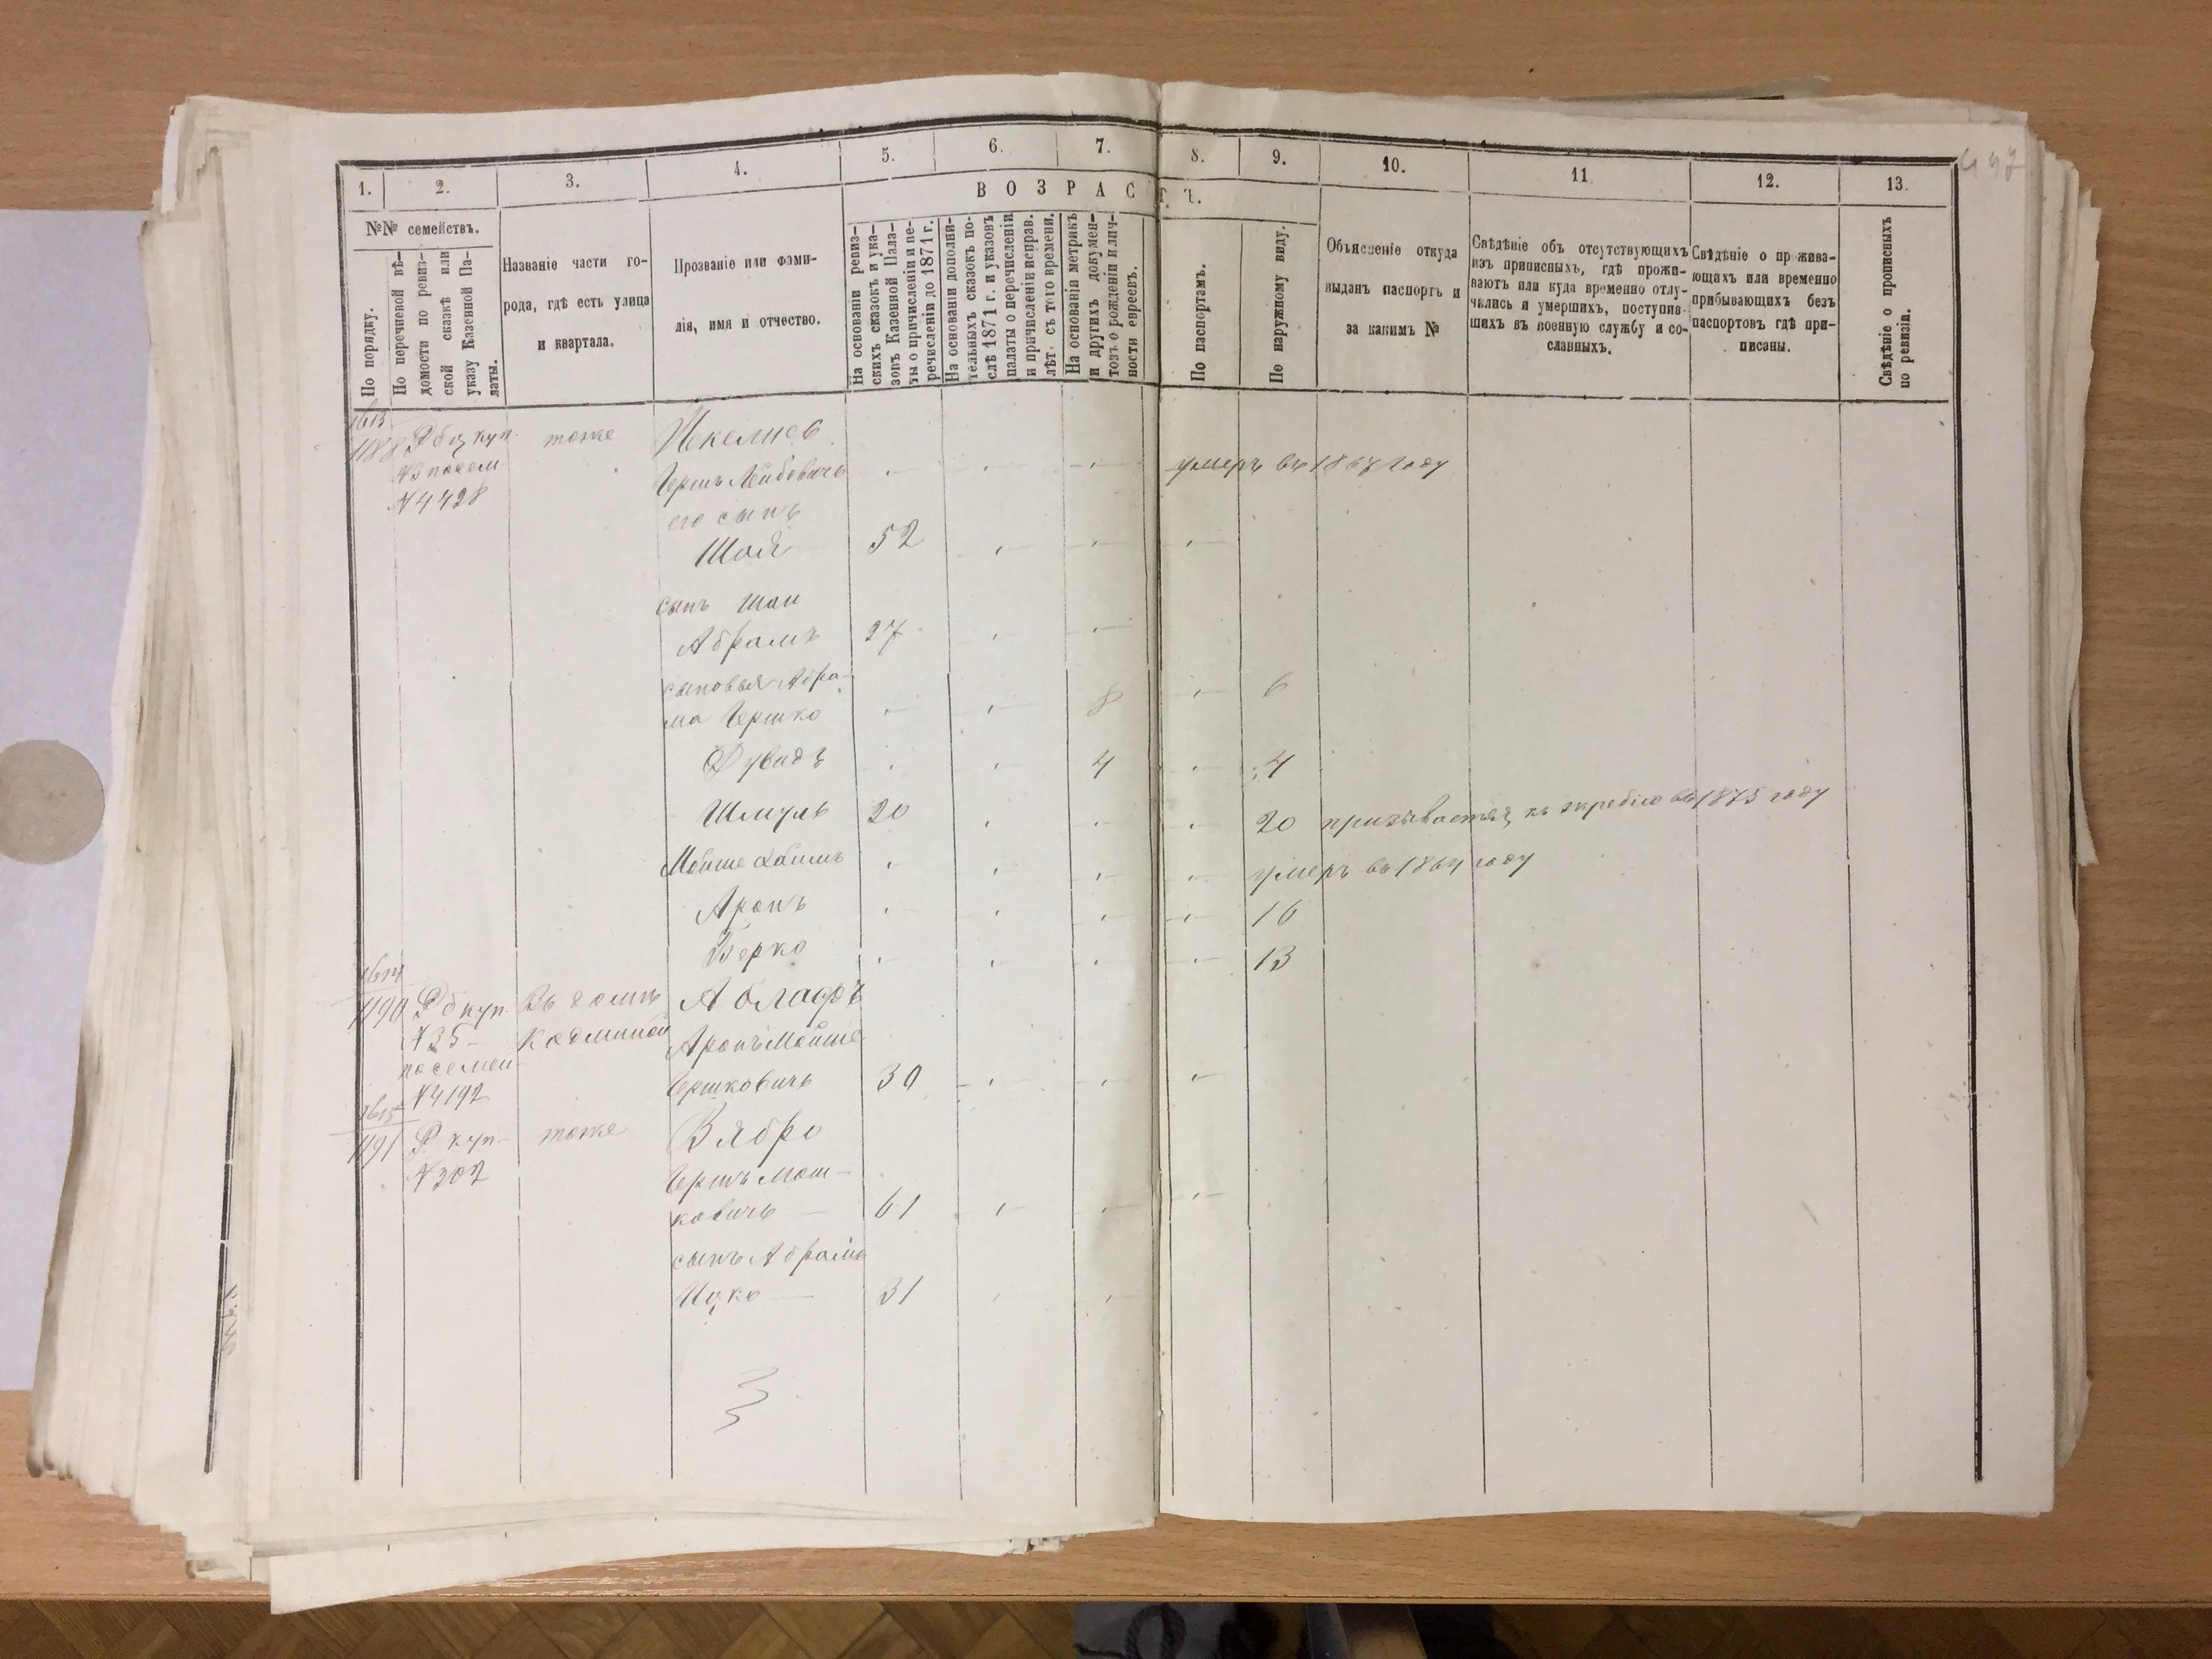 1. 2. 3. 4. 5. 6. 7. 8. 9. 10. 11 12. 13.
ВОЗРАСТЪ.
№№ семействъ.
По порядку.
По перечневой вѣ-
домости по ревиз-
ской сказкѣ или
указу Казенной Па-
латы.
Названіе части го-
рода, гдѣ есть улица
и квартала.
Прозваніе или фами-
лія, имя и отчество.
На основаніи ревиз-
скихъ сказокъ и ука-
зовъ Казенной Пала-
ты о причисленіи и пе-
речисленіи до 1871 г.
На основаніи дополни-
тельныхъ сказокъ по-
слѣ 1871 г. и указовъ
палаты о перечисленіи
и причисленіи исправ.
лѣт. съ того времени.
На основаніи метрикъ
и другихъ докумен-
товъ о рожденіи и лич-
ности евреевъ.
По паспортамъ.
По наружному виду.
Объясненіе откуда
выданъ паспортъ и
за какимъ №
Свѣдѣніе объ отсутствующихъ
изъ приписныхъ, гдѣ прожи-
ваютъ или куда временно отлу-
чились и умершихъ, поступив-
шихъ въ военную службу и со-
сланныхъ.
Свѣдѣніе о прожива-
ющихъ или временно
прибывающихъ безъ
паспортовъ гдѣ при-
писаны.
Свѣдѣніе о прописныхъ
по ревизіи.
1613
1188 тоже
№4428
Гершъ Лейбовичъ умеръ въ 1867 году
его сынъ
Шая 52
сынъ Шаи
Абрамъ 27
сыновья Абра-
ма Гершко 8 6
Дувидъ 4 4
Шмуль 20 20 призывается къ жребію въ 1875 году
Мойше Хаимъ умеръ въ 1864 году
Аронъ 16
Берко 13
1614
1190 Въ домѣ
№35
Аронъ Мойше
посемей-
Гершковичъ 30
№4192
1615
1191 куп- тоже Вябро
№302
Гершъ Мош-
ковичъ 61
сынъ Абрамъ
Ицко 31